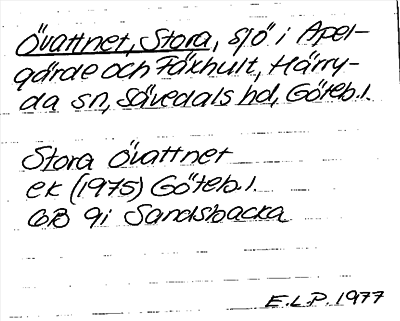 Övattnet, Stora, sjö i Apel-
gärde och Fäxhult, Härry-
da sn, Sävedals hd, Göteb.l.
Stora Övattnet
ek (1975) Göteb.l.
GB 9i Sandsbacka
E.L.P. 1977